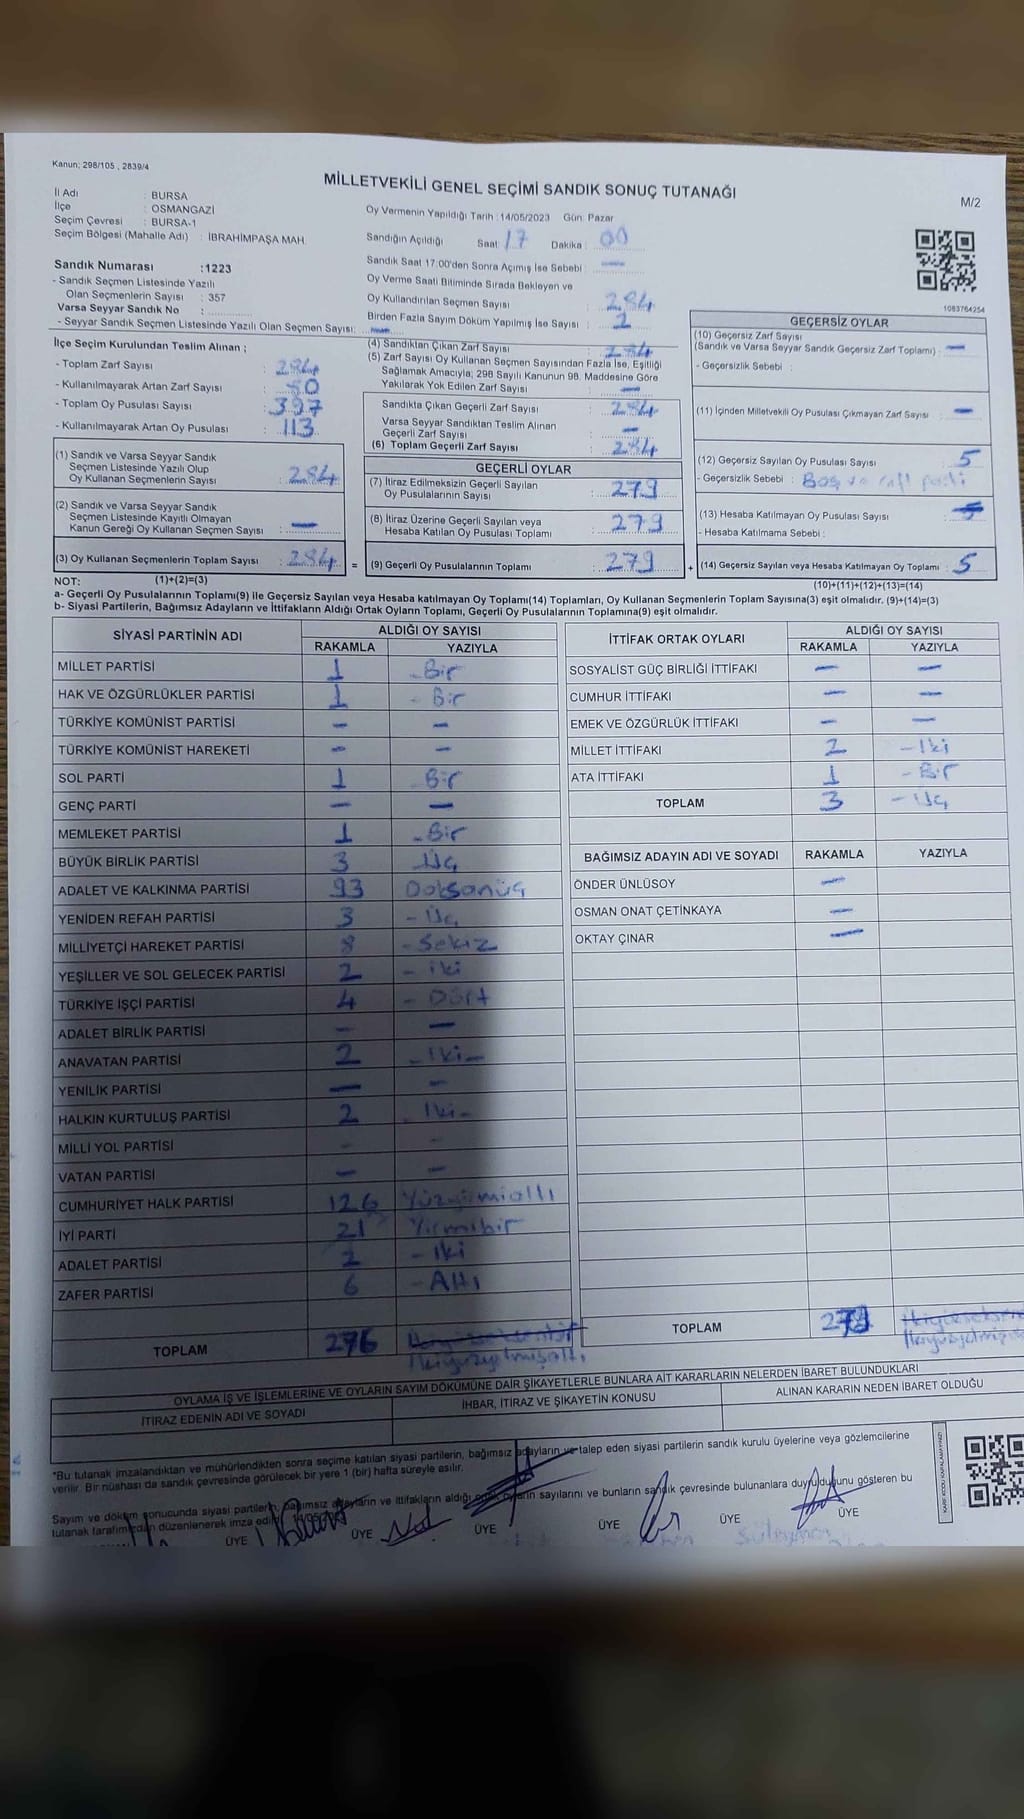 Kanun; 298/105 , 2839/4
MİLLETVEKİLİ GENEL SEÇİMİ SANDIK SONUÇ TUTANAĞI
M/2
İl Adı : BURSA
İlçe : OSMANGAZİ
Seçim Çevresi : BURSA-1
Seçim Bölgesi (Mahalle Adı) : İBRAHİMPAŞA MAH.
Sandık Numarası :1223
- Sandık Seçmen Listesinde Yazılı
Olan Seçmenlerin Sayısı : 357
Varsa Seyyar Sandık No :
- Seyyar Sandık Seçmen Listesinde Yazılı Olan Seçmen Sayısı: —
Oy Vermenin Yapıldığı Tarih : 14/05/2023 Gün: Pazar
Sandığın Açıldığı Saat: 17 Dakika : 00
Sandık Saat 17:00'den Sonra Açımış İse Sebebi : —
Oy Verme Saati Bitiminde Sırada Bekleyen ve
Oy Kullandırılan Seçmen Sayısı : 284
Birden Fazla Sayım Döküm Yapılmış İse Sayısı : 2
1083764254
İlçe Seçim Kurulundan Teslim Alınan ;
- Toplam Zarf Sayısı : 284
- Kullanılmayarak Artan Zarf Sayısı : 50
- Toplam Oy Pusulası Sayısı : 397
- Kullanılmayarak Artan Oy Pusulası : 113
(1) Sandık ve Varsa Seyyar Sandık
Seçmen Listesinde Yazılı Olup
Oy Kullanan Seçmenlerin Sayısı : 284
(2) Sandık ve Varsa Seyyar Sandık
Seçmen Listesinde Kayıtlı Olmayan
Kanun Gereği Oy Kullanan Seçmen Sayısı : —
(3) Oy Kullanan Seçmenlerin Toplam Sayısı : 284 =
(4) Sandıktan Çıkan Zarf Sayısı : 284
(5) Zarf Sayısı Oy Kullanan Seçmen Sayısından Fazla İse, Eşitliği
Sağlamak Amacıyla; 298 Sayılı Kanunun 98. Maddesine Göre
Yakılarak Yok Edilen Zarf Sayısı : —
Sandıkta Çıkan Geçerli Zarf Sayısı : 284
Varsa Seyyar Sandıktan Teslim Alınan
Geçerli Zarf Sayısı : —
(6) Toplam Geçerli Zarf Sayısı : 284
GEÇERLİ OYLAR
(7) İtiraz Edilmeksizin Geçerli Sayılan
Oy Pusulalarının Sayısı : 279
(8) İtiraz Üzerine Geçerli Sayılan veya
Hesaba Katılan Oy Pusulası Toplamı : 279
(9) Geçerli Oy Pusulalarının Toplamı : 279 +
GEÇERSİZ OYLAR
(10) Geçersiz Zarf Sayısı
(Sandık ve Varsa Seyyar Sandık Geçersiz Zarf Toplamı) : —
- Geçersizlik Sebebi :
(11) İçinden Milletvekili Oy Pusulası Çıkmayan Zarf Sayısı : —
(12) Geçersiz Sayılan Oy Pusulası Sayısı : 5
- Geçersizlik Sebebi : Boş ve
(13) Hesaba Katılmayan Oy Pusulası Sayısı :
- Hesaba Katılmama Sebebi :
(14) Geçersiz Sayılan veya Hesaba Katılmayan Oy Toplamı : 5
NOT: (1)+(2)=(3)
(10)+(11)+(12)+(13)=(14)
a- Geçerli Oy Pusulalarının Toplamı(9) ile Geçersiz Sayılan veya Hesaba katılmayan Oy Toplamı(14) Toplamları, Oy Kullanan Seçmenlerin Toplam Sayısına(3) eşit olmalıdır. (9)+(14)=(3)
b- Siyasi Partilerin, Bağımsız Adayların ve İttifakların Aldığı Ortak Oyların Toplamı, Geçerli Oy Pusulalarının Toplamına(9) eşit olmalıdır.
SİYASİ PARTİNİN ADI ALDIĞI OY SAYISI
RAKAMLA YAZIYLA
MİLLET PARTİSİ 1 Bir
HAK VE ÖZGÜRLÜKLER PARTİSİ 1 - Bir
TÜRKİYE KOMÜNİST PARTİSİ — —
TÜRKİYE KOMÜNİST HAREKETİ — —
SOL PARTİ 1 Bir
GENÇ PARTİ — —
MEMLEKET PARTİSİ 1 - Bir
BÜYÜK BİRLİK PARTİSİ 3 Üç
ADALET VE KALKINMA PARTİSİ 93 Doksanüç
YENİDEN REFAH PARTİSİ 3 - Üç
MİLLİYETÇİ HAREKET PARTİSİ 8 - Sekiz
YEŞİLLER VE SOL GELECEK PARTİSİ 2 - iki
TÜRKİYE İŞÇİ PARTİSİ 4 - Dört
ADALET BİRLİK PARTİSİ — —
ANAVATAN PARTİSİ 2 - İki -
YENİLİK PARTİSİ — —
HALKIN KURTULUŞ PARTİSİ 2 - İki -
MİLLİ YOL PARTİSİ — —
VATAN PARTİSİ — —
CUMHURİYET HALK PARTİSİ 126 Yüzyirmialtı
İYİ PARTİ 21 Yirmibir
ADALET PARTİSİ 2 - İki
ZAFER PARTİSİ 6 - Altı
TOPLAM 276
İkiyüzyetmişaltı
İTTİFAK ORTAK OYLARI ALDIĞI OY SAYISI
RAKAMLA YAZIYLA
SOSYALİST GÜÇ BİRLİĞİ İTTİFAKI — —
CUMHUR İTTİFAKI — —
EMEK VE ÖZGÜRLÜK İTTİFAKI — —
MİLLET İTTİFAKI 2 - İki
ATA İTTİFAKI 1 - Bir
TOPLAM 3 - Üç
BAĞIMSIZ ADAYIN ADI VE SOYADI RAKAMLA YAZIYLA
ÖNDER ÜNLÜSOY —
OSMAN ONAT ÇETİNKAYA —
OKTAY ÇINAR —
TOPLAM 279
OYLAMA İŞ VE İŞLEMLERİNE VE OYLARIN SAYIM DÖKÜMÜNE DAİR ŞİKAYETLERLE BUNLARA AİT KARARLARIN NELERDEN İBARET BULUNDUKLARI
İTİRAZ EDENİN ADI VE SOYADI İHBAR, İTİRAZ VE ŞİKAYETİN KONUSU ALINAN KARARIN NEDEN İBARET OLDUĞU
*Bu tutanak imzalandıktan ve mühürlendikten sonra seçime katılan siyasi partilerin, bağımsız adayların ve talep eden siyasi partilerin sandık kurulu üyelerine veya gözlemcilerine
verilir. Bir nüshası da sandık çevresinde görülecek bir yere 1 (bir) hafta süreyle asılır.
Sayım ve döküm sonucunda siyasi partilerin, bağımsız adayların ve ittifakların aldığı ortak oyların sayılarını ve bunların sandık çevresinde bulunanlara duyrulduğunu gösteren bu
tutanak tarafımızdan düzenlenerek imza edildi. 14/05/
ÜYE ÜYE ÜYE ÜYE ÜYE ÜYE
Süleyman